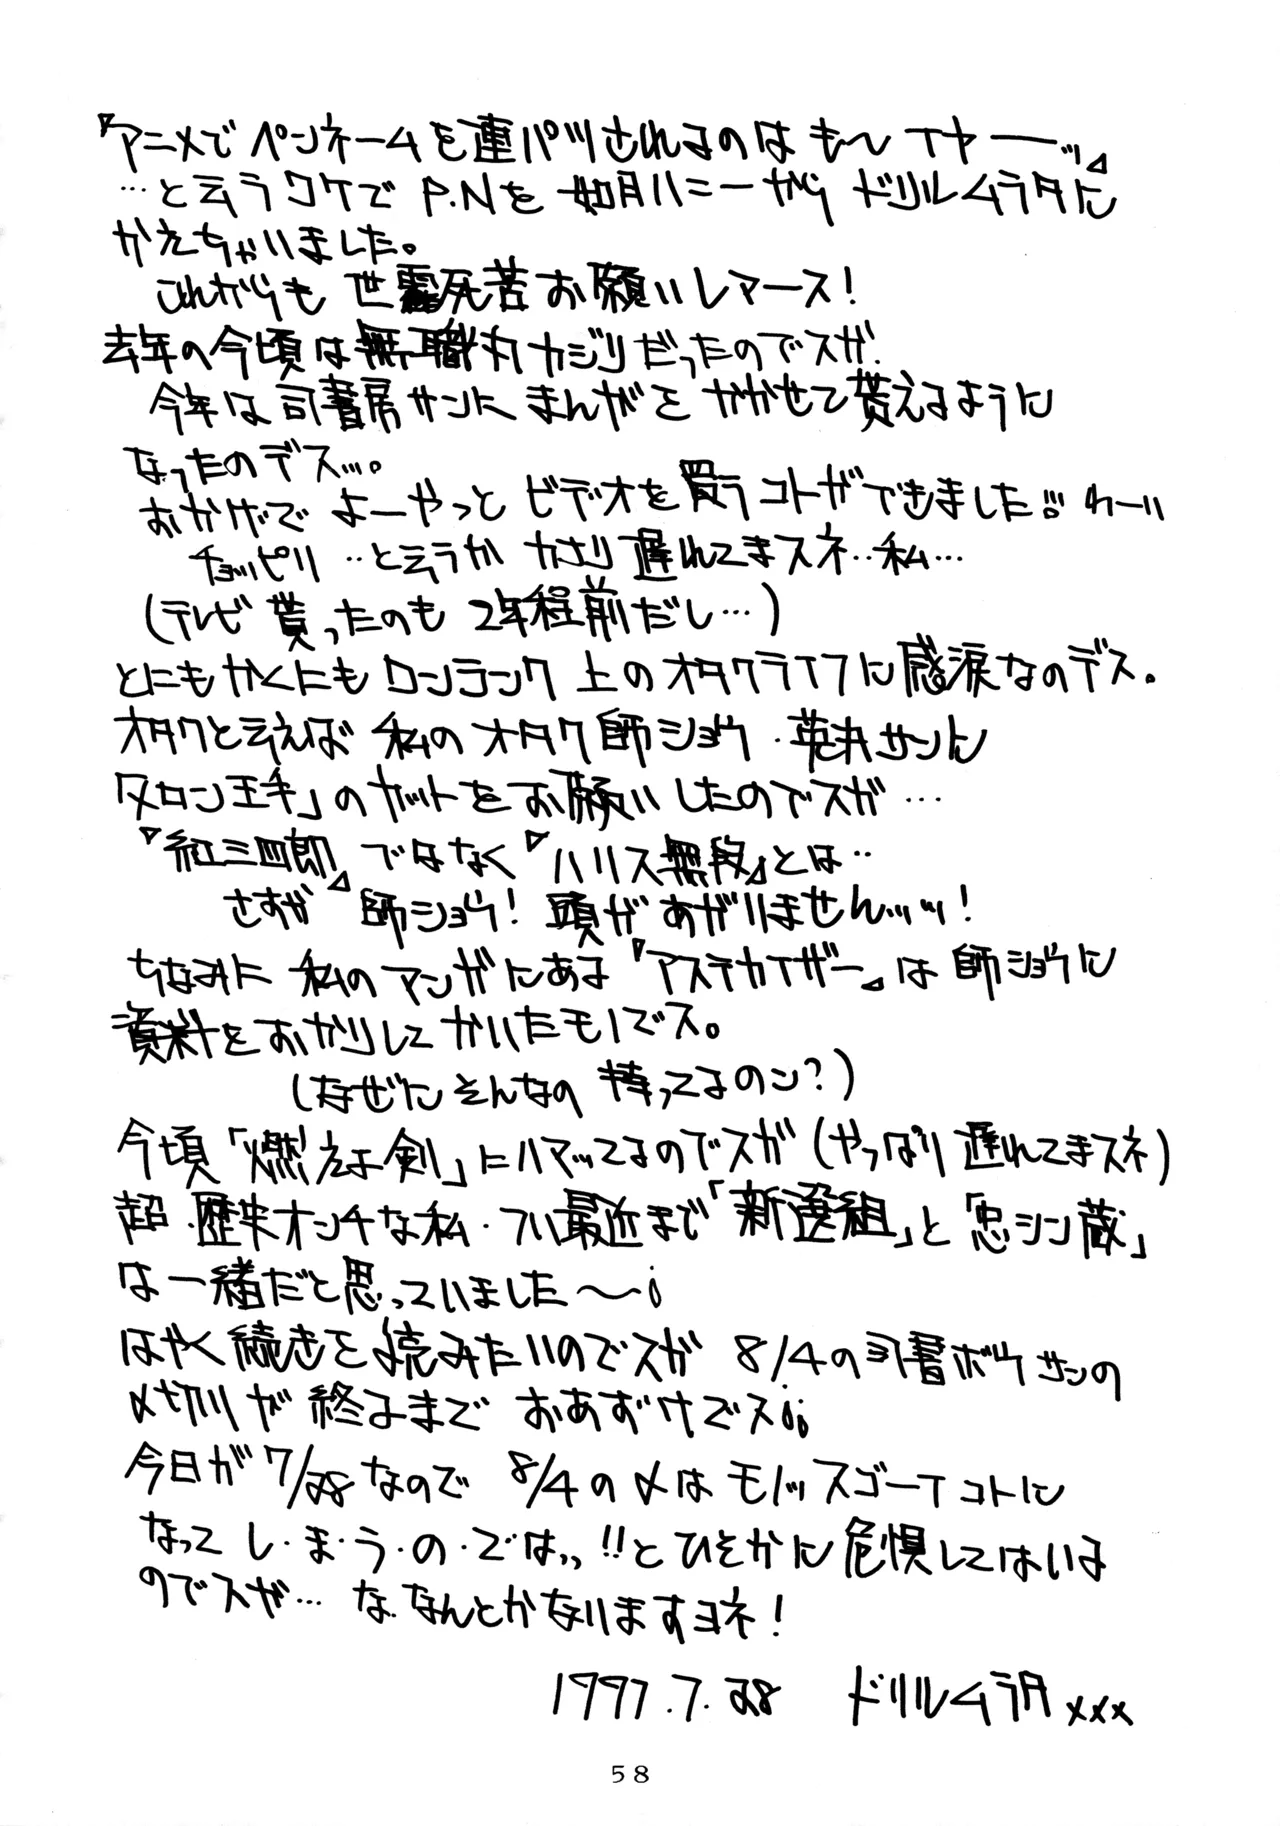 『アニメでペンネームを連パツされるのはも〜イヤーーッ』
…と云うワケで P.Nを 如月ハニーから ドリルムラタに
かえちゃいました。
これからも 世露死苦お願いシマース!
去年の今頃は無職丸カジリだったのでスガ、
今年は司書房サンに まんがを かかせて貰えるように
なったのデス…。
おかげで よーやっと ビデオを買うコトガできました!! わーい
チョッピリ …と云うか かなり 遅れてまスネ‥私…
(テレビ 貰ったのも 2年程前だし…)
とにもかくにも ワンランク 上の オタクライフに感涙なのデス。
オタクと云えば 私の オタク師ショウ・英丸サンに
「タロン王手」の カットをお願いしたのでスガ…
『紅三四郎』ではなく『ハリス無段』とは‥
さすが 師ショウ! 頭があがりませんッッ!
ちなみに 私のマンガにある『アステカイザー』は 師ショウに
資料をおかりして かいたモノでス。
(なぜにそんなの 持ってるのン?)
今頃「燃えよ剣」にハマッてるのでスガ(やっぱり 遅れてまスネ)
超・歴史オンチな私・つい最近まで「新選組」と「忠シン蔵」
は一緒だと思っていました〜¡
はやく続きを読みたいのでスガ 8/4の司書ボウサンの
〆切りが 終るまで おあずけでス¡¡
今日が 7/28なので 8/4の〆は モノッスゴーイ コトに
なって し・ま・う・の・では、、!!と ひそかに 危惧してはいる
のでスガ… な、なんとかなりますヨネ!
1997.7.28 ドリルムラタ xxx
58